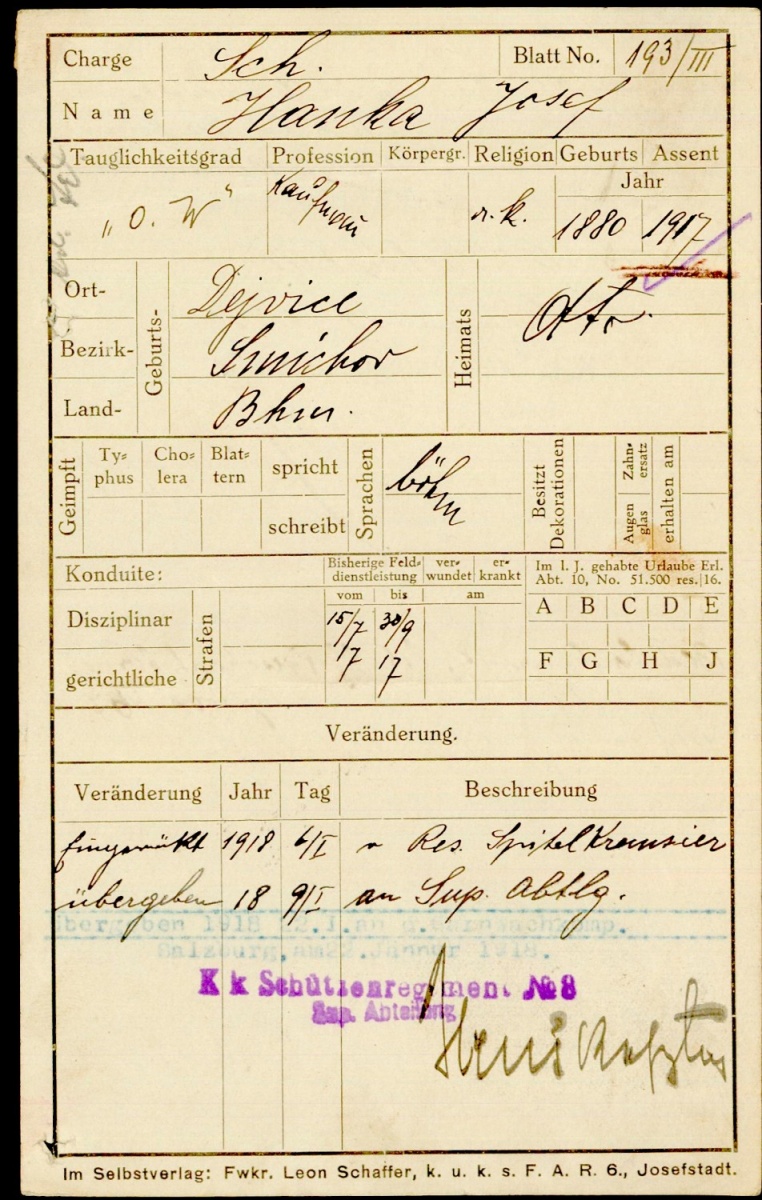 Charge Sch. Blatt No. 193/III
Name Hanka Josef
Tauglichkeitsgrad Profession Körpergr. Religion Geburts Assent
Jahr
„O. W“ Kaufmann r. k. 1880 1917
Ort- Dejvice
Bezirk- Geburts- Smichov Heimats
Land- Bhm.
Geimpft Ty=phus Cho=lera Blat=tern spricht Sprachen böhm Besitzt Dekorationen Zahn=ersatz Augen glas erhalten am
schreibt
Konduite: Bisherige Feld=dienstleistung ver=wundet er=krankt Im l. J. gehabte Urlaube Erl.
Abt. 10, No. 51.500 res. 16.
vom bis am
A B C D E
Disziplinar Strafen 15/7 30/9
17 17
gerichtliche F G H J
Veränderung.
Veränderung Jahr Tag Beschreibung
Eingerückt 1918 6/I v Res. Spital Kremsier
übergeben 18 9/I an Sup. Abtlg.
übergeben 1918 22.I. an d.
Salzburg, am 22. Jänner 1918.
K k Schützenregiment № 8
Sup. Abteilung
Im Selbstverlag: Fwkr. Leon Schaffer, k. u. k. s. F. A. R. 6., Josefstadt.